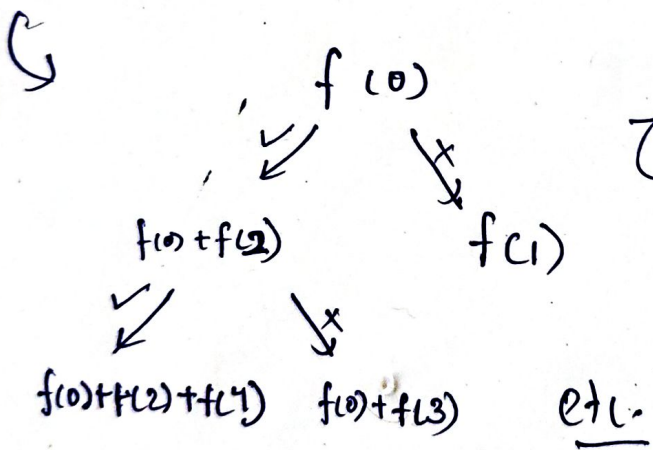 f(0)
✓ x
f(0) + f(2) f(1)
✓ x
f(0)+f(2)+f(4) f(0)+f(3) etc.